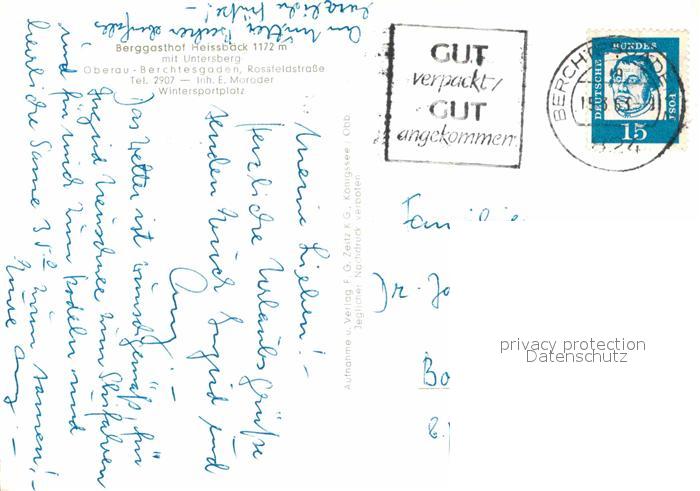 An Mutter Fischer ebenfalls
herzliche Grüße! -
Berggasthof Heissbäck 1172 m
mit Untersberg
Oberau - Berchtesgaden, Rossfeldstraße
Tel. 2907 — Inh. E. Maroder
Wintersportplatz
Meine Lieben! -
Herzliche Urlaubsgrüße
senden Euch Ingrid und
Anny. -
Das Wetter ist wunschgemäß, für
Ingrid Neuschnee zum Skifahren
und für mich zum Rodeln und
herrliche Sonne zum
Eure Anny. -
Aufnahme u. Verlag F. G. Zeitz K G., Königssee / Obb.
Jeglicher Nachdruck verboten
GUT
verpackt/
GUT
angekommen
BERCH
63
DEUTSCHE
BUNDES
POST
15
Fam
Dr. Jo
Bo
privacy protection
Datenschutz